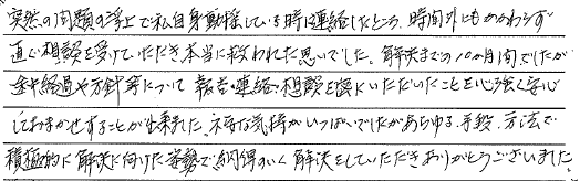 突然の問題の浮上で私自身動揺している時に連絡したところ、時間外にもかかわらず
直ぐ相談を受けていただき、本当に救われた思いでした。解決までの10か月間でしたが
途中経過や方針等について報告・連絡・相談を密にいただいたことを心強く安心
しておまかせすることが出来ました。不安な気持がいっぱいでしたがあらゆる手段、方法で
積極的に解決に向けた姿勢で納得のいく解決をしていただきありがとうございました。